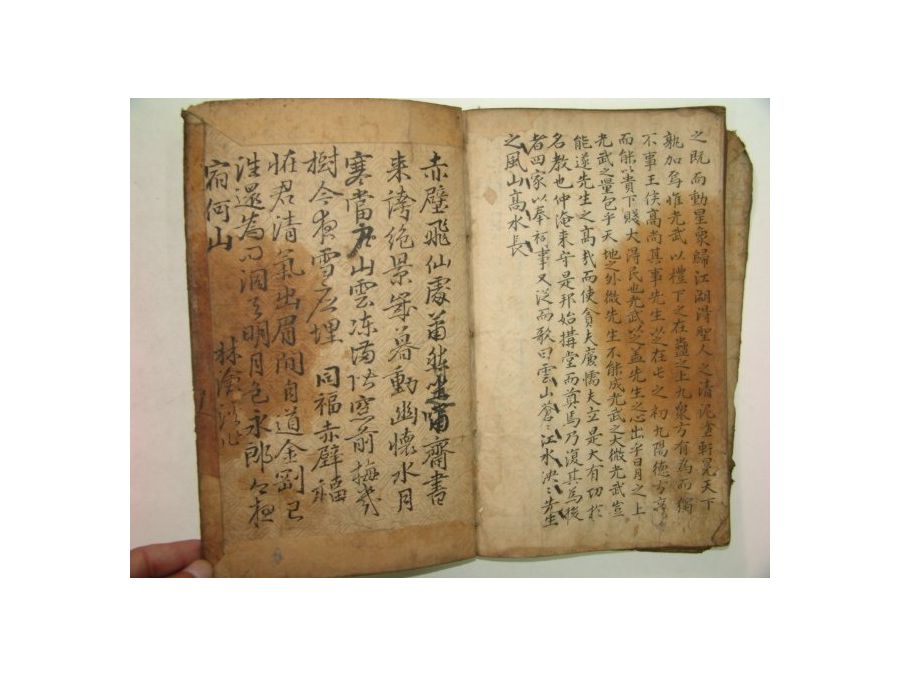 之既而動星象歸江湖得聖人之清泥塗軒冕天下
孰加焉惟光武以禮下之在蠱之上九衆方有為而獨
不事王侯高尚其事先生以之在屯之初九陽德方亨
而能以貴下賤大得民也光武以之盖先生之心出乎日月之上
光武之量包乎天地之外微先生不能成光武之大微光武豈
能遂先生之高哉而使貪夫廉懦夫立是大有功於
名教也仲淹来守是邦始搆堂而奠焉乃復其為後
者四家以奉祠事又從而歌曰雲山蒼〻江水泱〻先生
之風山高水長
赤壁飛仙處 齋書
来誇絶景歲暮動幽懷水月
寒當户山雲冻滿階窓前梅幾
樹今夜雪應埋 同福赤壁福
怪君清氣出眉間自道金剛已
往還為問洞天明月色永郎今夜
宿何山
林滄溪